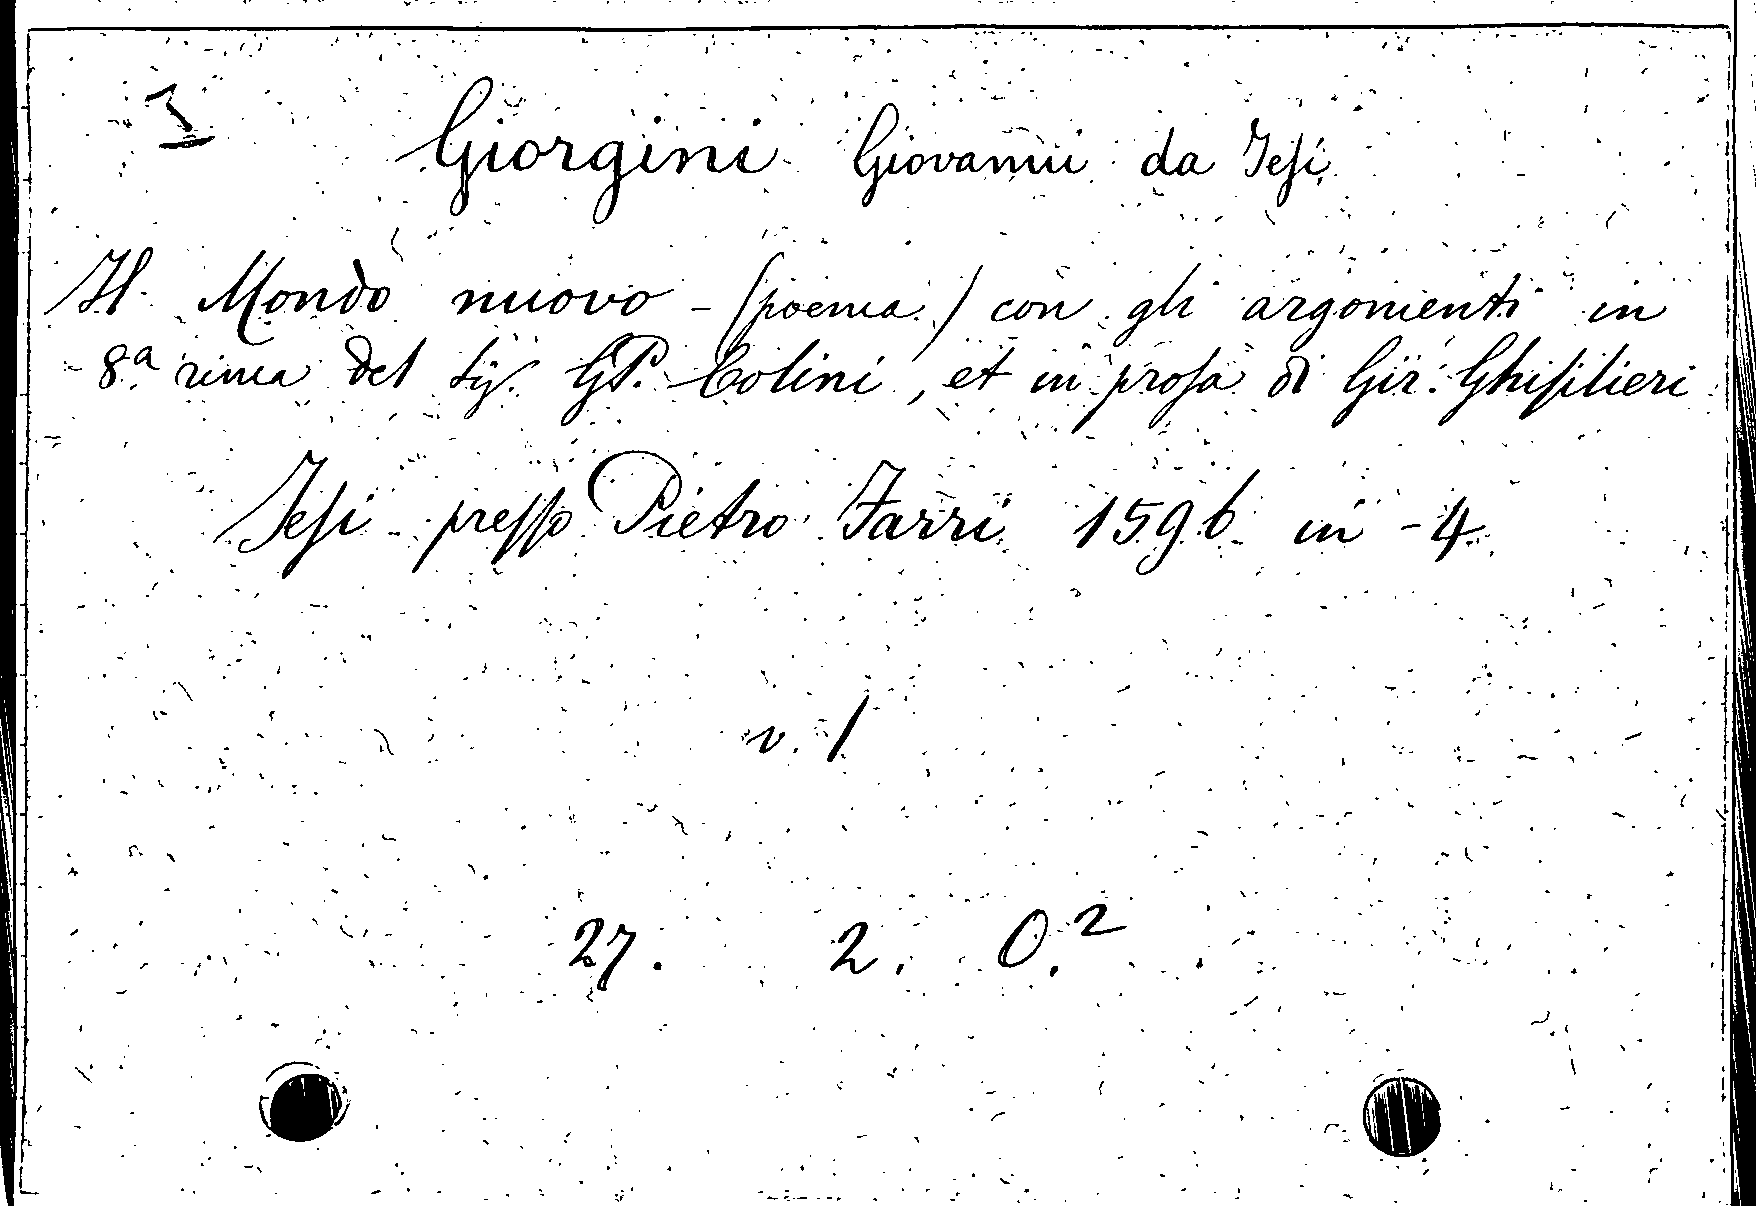 Giorgini Giovanni da Jesi
Il Mondo nuovo - (poema) con gli argomenti in
8ª rima del Sig. GP. Colini, et in prosa di Gir: Ghisilieri
Jesi presso Pietro Farri 1596 in-4
v. 1
27. 2. O.²